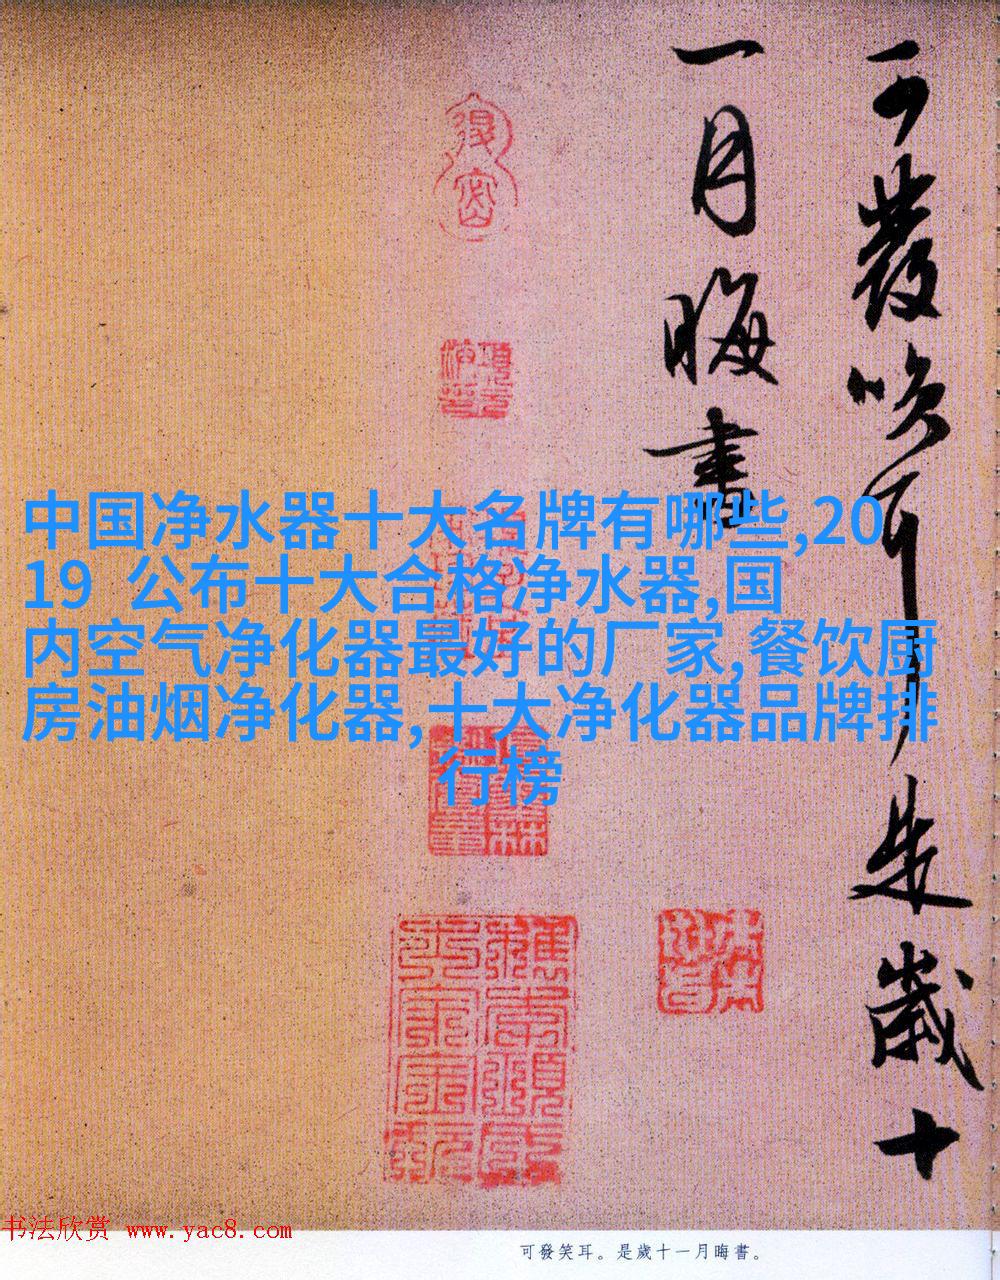 可發笑耳是歲十
一月晦書
中国净水器十大名牌有哪些,20
19 公布十大合格净水器,国
内空气净化器最好的厂家,餐饮厨
房油烟净化器,十大净化器品牌排
行榜
书法欣赏 www.yac8.com
可發笑耳。是歲十一月晦書。